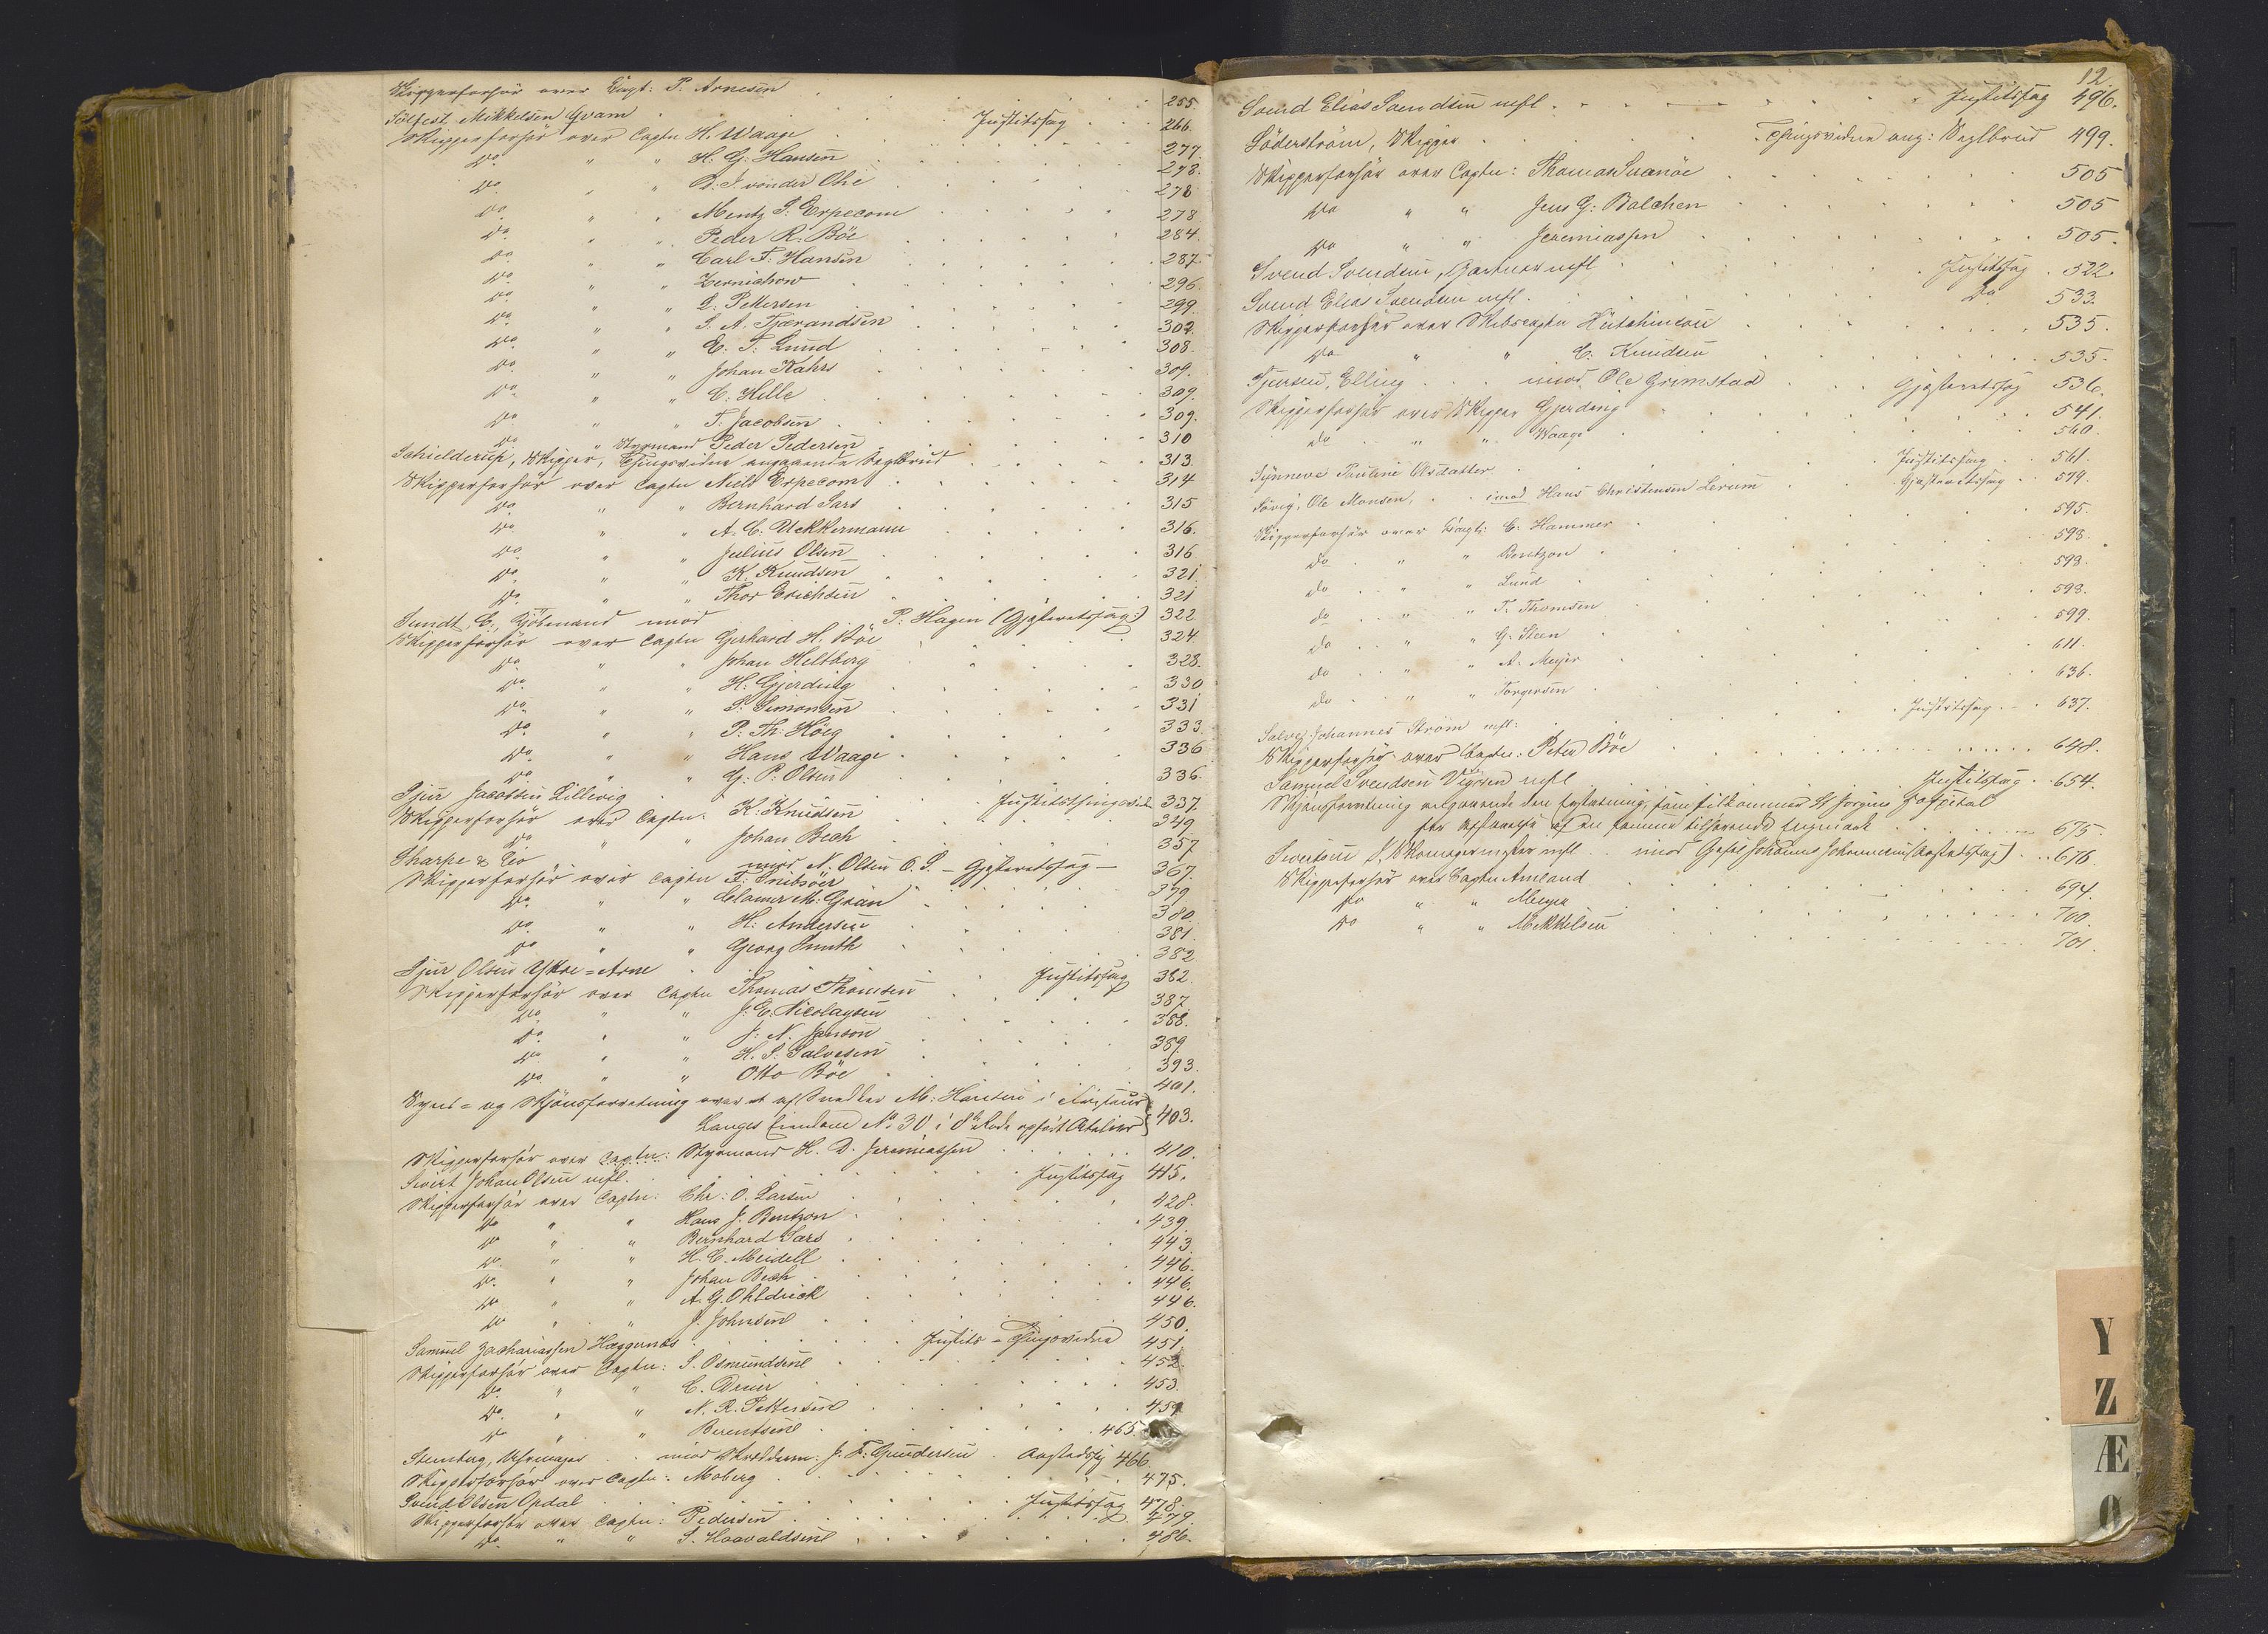 Skipperforhør over Capt: P. Arnesen 255.
Sölfest Mikkelsen Gvam Justitssag 266.
Skipperforhör over Captn H. Waage 277.
Do " " H. G. Hansen 278.
Do " " D. J. von der Ohe 278
Do " " Mentz S. Erpecom 278.
Do " " Peder R. Böe 284.
Do " " Carl F. Hansen 287.
Do " " Zernichow 296.
Do " " Q. Pettersen 299.
Do " " S. A. Tjærandsen 302.
Do " " E. T. Lund 308.
Do " " Johan Kahrs 309.
Do " " C. Hille 309.
Do " " T. Jacobsen 309.
Do " Styrmand Peder Pedersen 310
Schielderup, Skipper, Thingsvidne angaaende Seglbrud 313.
Skipperforhör over Captn Niels Erpecom 314
Do " " Bernhard Sars 315
Do " " A. C. Uckermann 316.
Do " " Julius Olsen 316
Do " " K. Knudsen 321.
Do " " Thor Erichsen 321
Sundt, C., Kjöbmand mod P. Hagen (Gjæsteretssag:) 322
Skipperforhör over Captn Gerhard H. Böe 324.
Do " " Johan Heltberg 328.
Do " " H. Gjerding 330
Do " " S. Simonsen 331
Do " " P. Th. Höeg 333.
Do " " Hans Waage 336
Do " " G. P. Olsen 336.
Sjur Jacobsen Lillevig Justitsthingsvidne 337.
Skipperforhör over Captn. K. Knudsen 349.
Do " " Johan Bech 357.
Sharpe & Co mod N. Olsen O. S. - Gjæsteretssag - 367.
Skipperforhör over Captn F. Friböer 379
Do " " Clamer M. Gran 380.
Do " " H. Andersen 381.
Do " " Georg Smith 382
Sjur Olsen Ystre=Arne Justitssag 382.
Skipperforhör over Captn Thomas Thomsen 387
Do " " J. E. Nicolaysen 388.
Do " " J. N. Janson 389.
Do " " H. S. Salvesen 393.
Do " " Otto Böe 401.
Syns= og Skjönsforretning over et af Snedker M. Hansen i
Langes Eiendom No 30 i 8de Rode opført Atelier 403.
Skipperforhör over Captn: Styrmand H. D. Jeremiassen 410.
Sivert Johan Olsen mfl. Justitssag 415.
Skipperforhör over Captn: Chr: O. Larsen 428.
Do " " Hans J. Bentzon 439.
Do " " Bernhard Sars 443.
Do " " H. C. Meidell 446.
Do " " Johan Bech 446.
Do " " A. G. Ohldieck 446.
Do " " J. Johnsen 450.
Samuel Zachariassen Hæggernæs Justits-Thingsvidne 451.
Skipperforhör over Captn: S. Osmundsen 452.
Do " " C. 453.
Do " " N. R. Pettersen 459
Do " " Berentsen 465.
Stenberg, Uhrmager mod Skræderm. J. F. Gundersen Aastedssag 466.
Skipperforhör over Captn: Moberg 475.
Svend Olsen Opdal Justitssag 478.
Skipperforhör over Captn: Pedersen 479.
Do " " S. Haavaldsen 486.
12.
Svend Elias Svendsen mfl. Justitssag 496.
Söderström, Skipper Thingsvidne ang: Seglbrud 499.
Skipperforhör over Captn: Thomas Svanöe 505
Do " " Jens G. Balchen 505
Do " " Jeremiassen 505.
Svend Svendsen, Gartner mfl Justitssag 522.
Svend Elias Svendsen mfl. Do 533.
Skipperforhör over Skibscaptn Hutchinson 535.
Do " " C. Knudsen 535.
Sjursen, Elling mod Ole Grimstad Gjæsteretssag 536.
Skipperforhör over Skipper Gjerding 541.
Do " " Waage 560.
Synneve Pauline Olsdatter Justitssag 561.
Sövig, Ole Monsen, imod Hans Christensen Lerum Gjæsteretssag 579.
Skipperforhör over Capt: C. Hammer 595.
Do " " Bentzon 598.
Do " " Lund 598.
Do " " T. Thomsen 598.
Do " " G. Steen 599.
Do " " A. Meyer 611.
Do " " Torgersen 636.
Salve Johannes Ström mfl: Justitssag 637.
Skipperforhör over Captn: Peter Böe 648.
Samuel Svendsen mfl Justitssag 654.
Skjönsforretning angaaende den Erstatning, som tilkommer St Jørgens Hospital
for Afstaaelse af en samme tilhørende 675.
Sivertsen S, Skomagermester mfl mod Johannes Johannesen (Aastedssag) 678.
Skipperforhör over Captn Amland 694.
Do " " Meyer 700.
Do " " Mikkelsen 701.
Y
Z
Æ
Ö